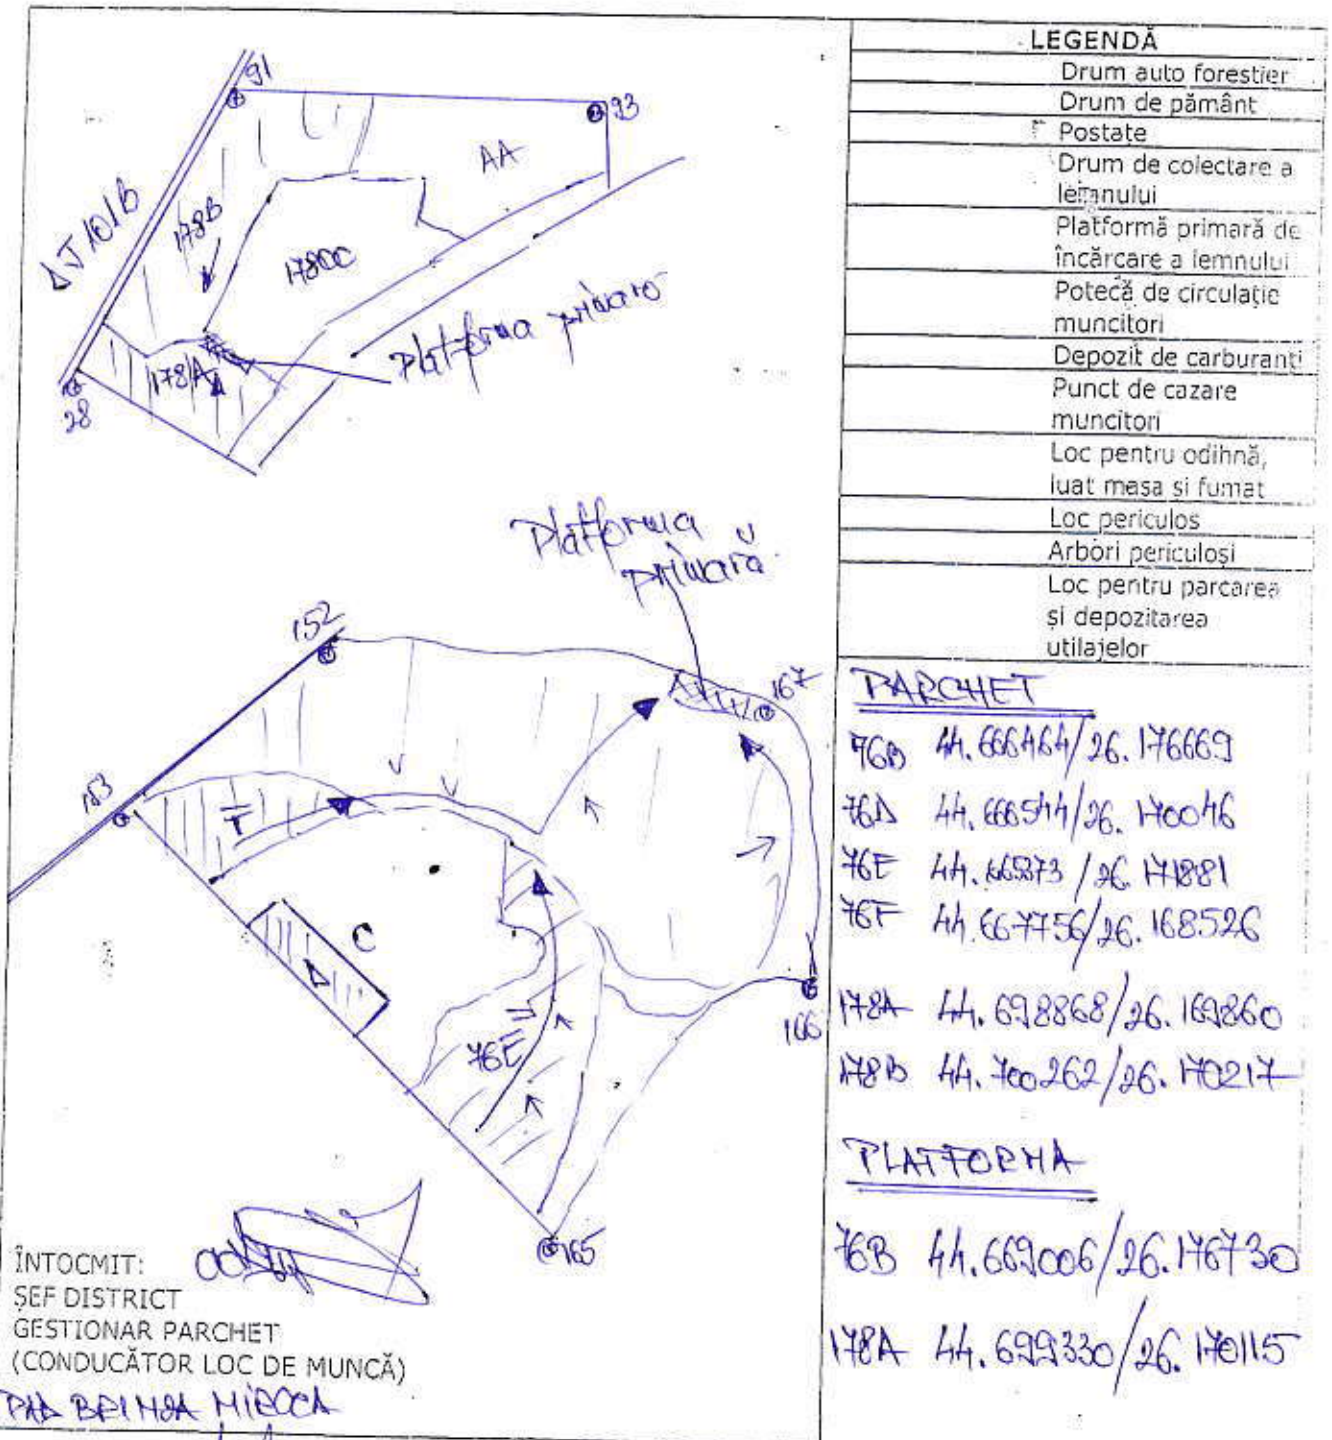 91
93
AA
DJ 101B
178B
178CC
Platforma primara
178A
28
Platforma
primară
152
167
153
F
C
76E
166
165
ÎNTOCMIT:
ȘEF DISTRICT
GESTIONAR PARCHET
(CONDUCĂTOR LOC DE MUNCĂ)
LEGENDĂ
Drum auto forestier
Drum de pământ
Postațe
Drum de colectare a
lemnului
Platformă primară de
încărcare a lemnului
Potecă de circulație
muncitori
Depozit de carburanți
Punct de cazare
muncitori
Loc pentru odihnă,
luat masa si fumat
Loc periculos
Arbori periculoși
Loc pentru parcarea
și depozitarea
utilajelor
PARCHET
76B 44.666464/26.176669
76D 44.666544/26.170046
76E 44.665373/26.171881
76F 44.667756/26.168526
178A 44.698868/26.169860
178B 44.700262/26.170217
PLATFORMA
76B 44.669006/26.176730
178A 44.699330/26.170115